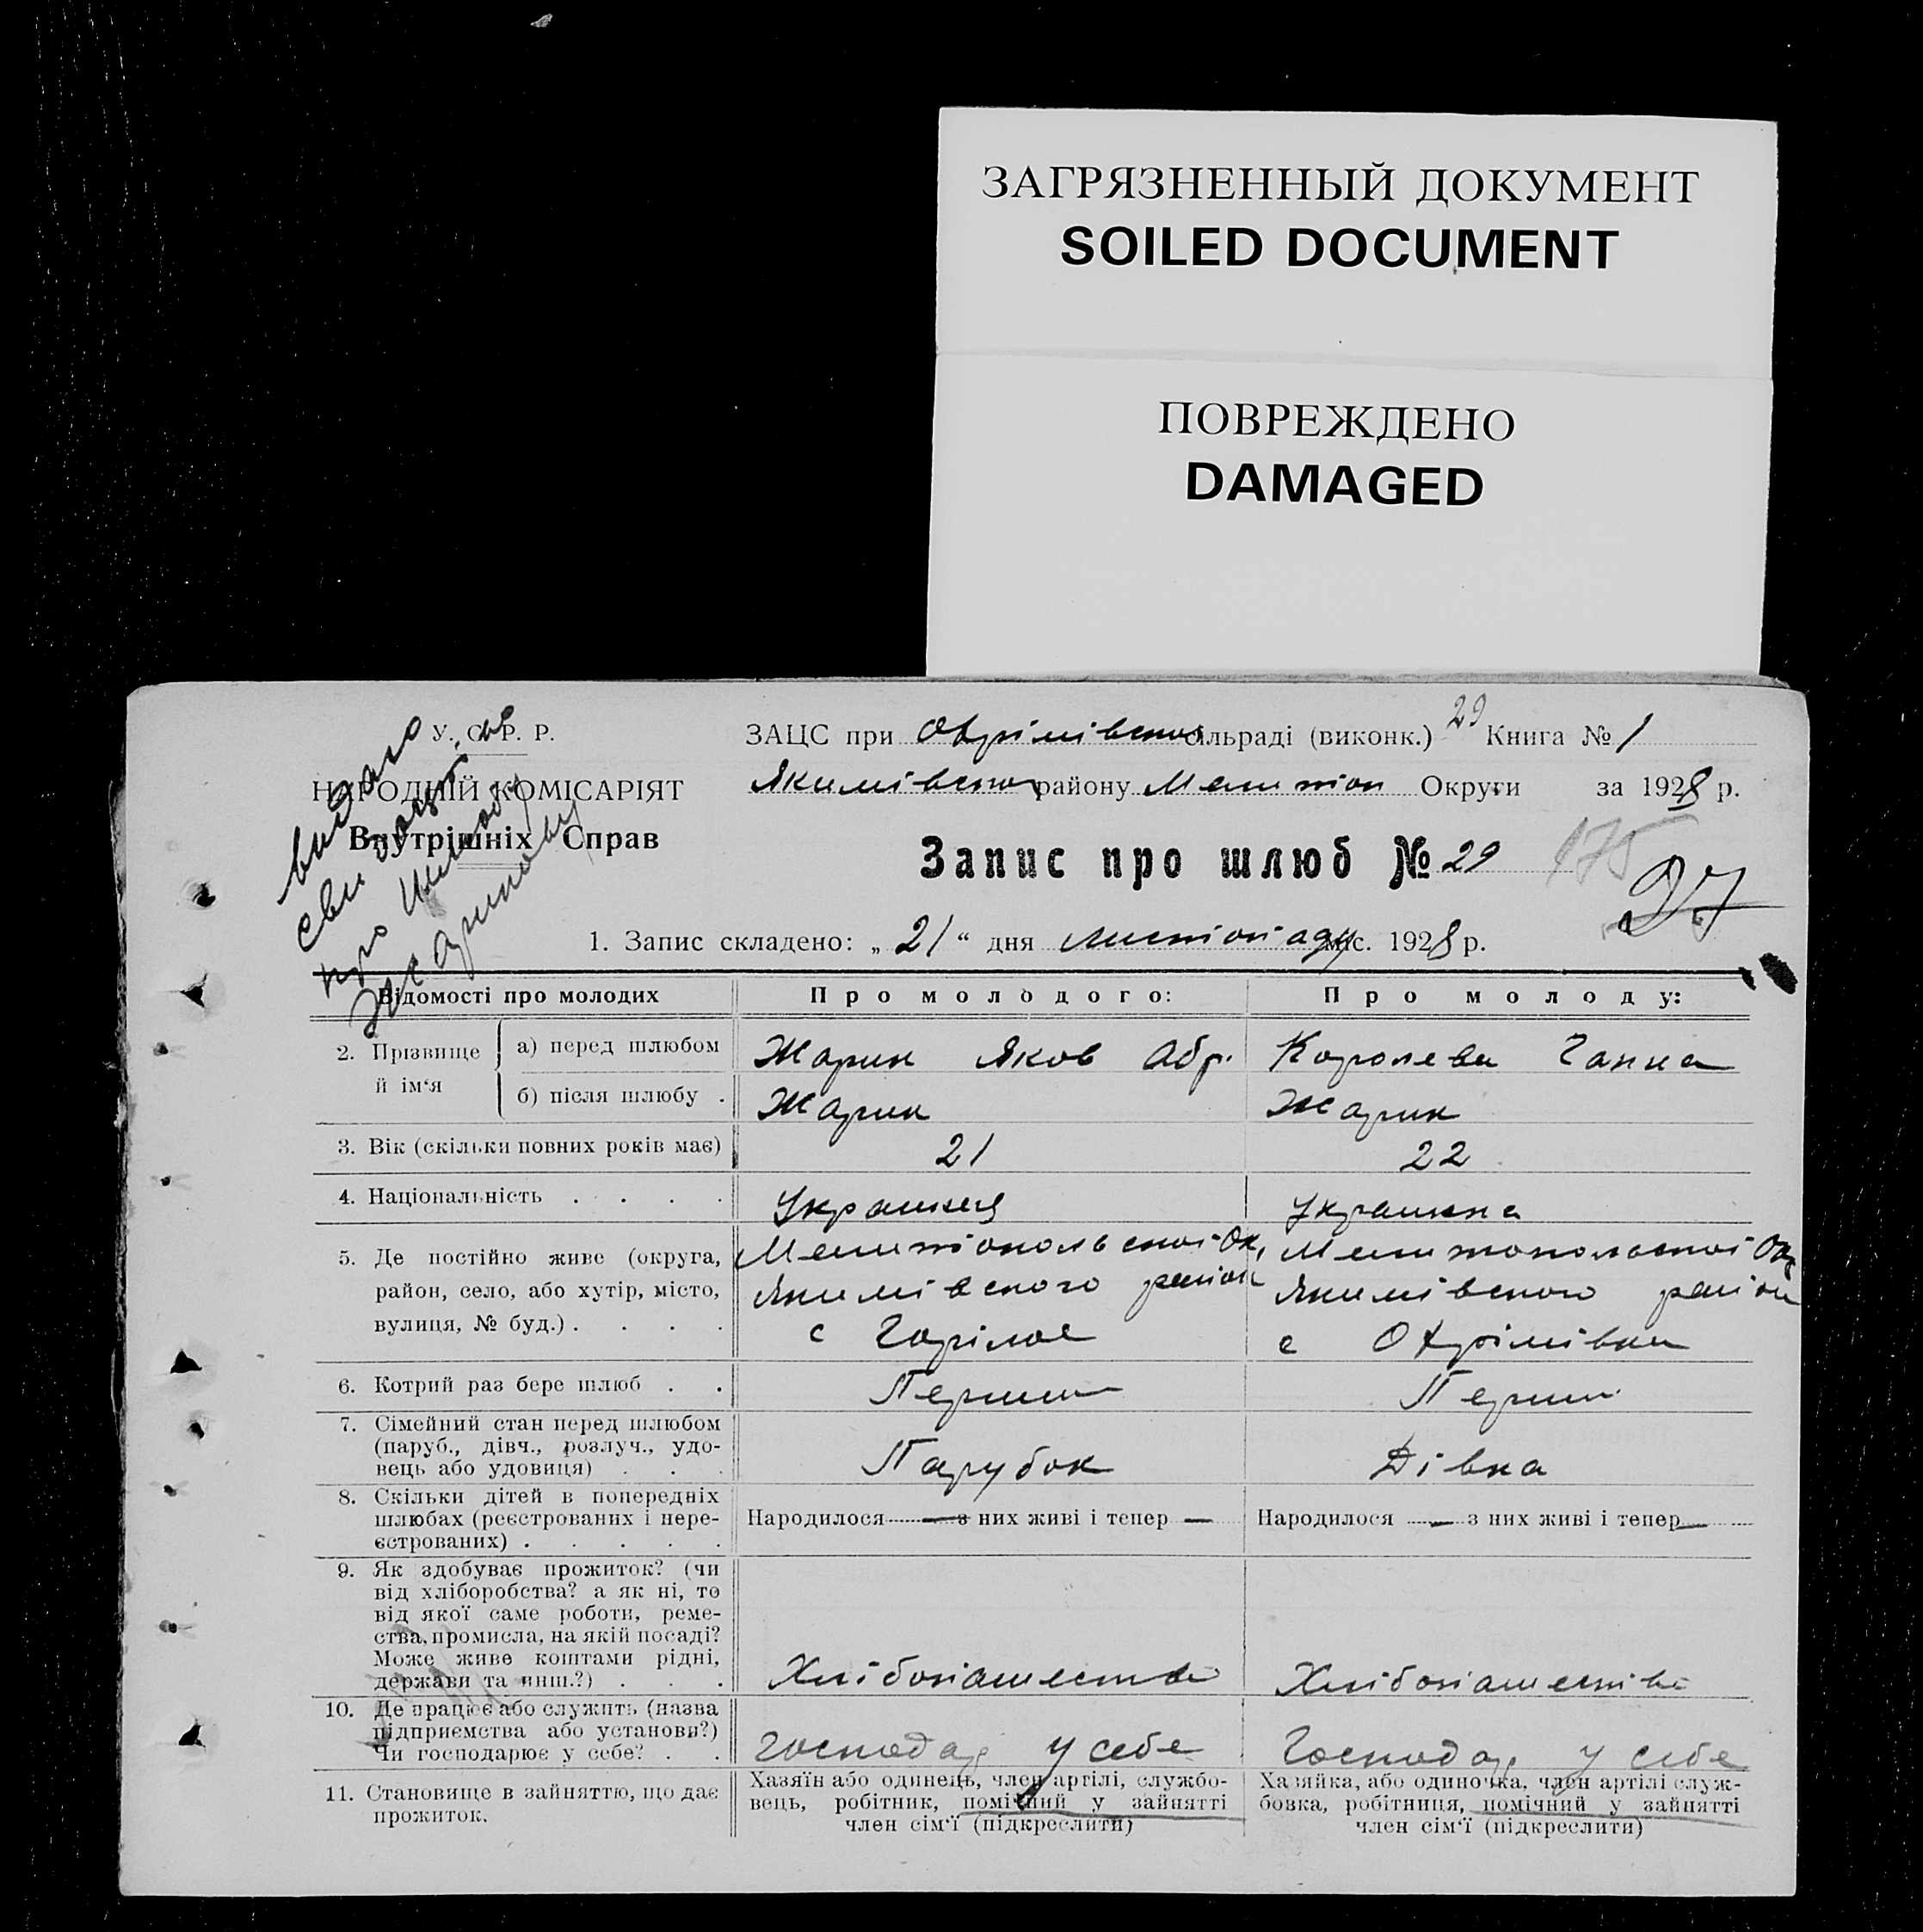 ЗАГРЯЗНЕННЫЙ ДОКУМЕНТ
SOILED DOCUMENT
ПОВРЕЖДЕНО
DAMAGED
У. С. Р. Р.
НАРОДНІЙ КОМІСАРІЯТ
Внутрішніх Справ
видано
про шлюб
ЗАЦС при Охрімівској сільраді (виконк.) 29 Книга № 1
Якимівского району Мелитоп Округи за 1928 р.
Запис про шлюб № 29 175
27
1. Запис складено: „ 21 “ дня листопаду міс. 1928 р.
Відомості про молодих
Про молодого:
Про молоду:
2. Прізвище й ім‘я
а) перед шлюбом
Жарик Яков Абр.
Королева Ганна
б) після шлюбу .
Жарик
Жарик
3. Вік (скільки повних років має)
21
22
4. Національність . . . .
Украинец
Украинка
5. Де постійно живе (округа,
район, село, або хутір, місто,
вулиця, № буд.) . . . .
Мелитопольскої Ок.
Якимівского району
с Горілое
Мелитопольскої Окр
Якимівского району
с Охрімівки
6. Котрий раз бере шлюб . .
Перши
Перши
7. Сімейний стан перед шлюбом
(паруб., дівч., розлуч., удо-
вець або удовиця) . . .
Парубок
Дівка
8. Скільки дітей в попередніх
шлюбах (реєстрованих і нере-
єстрованих) . . . . .
Народилося — з них живі і тепер —
Народилося — з них живі і тепер —
9. Як здобуває прожиток? (чи
від хліборобства? а як ні, то
від якої саме роботи, реме-
ства, промисла, на якій посаді?
Може живе коштами рідні,
держави та инш.?) . . .
Хлібопашество
Хлібопашество
10. Де працює або служить (назва
підприємства або установи?)
Чи господарює у себе? . .
Господар у себе
Господар у себе
11. Становище в зайняттю, що дає
прожиток.
Хазяїн або одинець, член артілі, службо-
вець, робітник, помічний у зайнятті
член сім‘ї (підкреслити)
Хазяйка, або одиночка, член артілі служ-
бовка, робітниця, помічний у зайнятті
член сім‘ї (підкреслити)